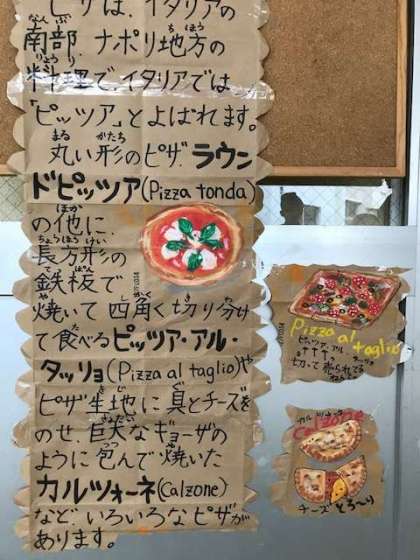 ピザは、イタリアの
南部、ナポリ地方の
料理で、イタリアでは
「ピッツア」とよばれます。
丸い形のピザ、ラウン
ドピッツア(Pizza tonda)
の他に、
長方形の
鉄板で
焼いて四角く切り分け
て食べるピッツア・アル・
タッリョ(Pizza al taglio)や
ピザ生地に具とチーズを
のせ、巨大なギョーザの
ように包んで焼いた
カルツォーネ(Calzone)
など、いろいろなピザが
あります。
Pizza al
taglio
ピッツァ アル タッリョ
切って売られてる
カルツォーネ
Calzone
チーズとろ〜り